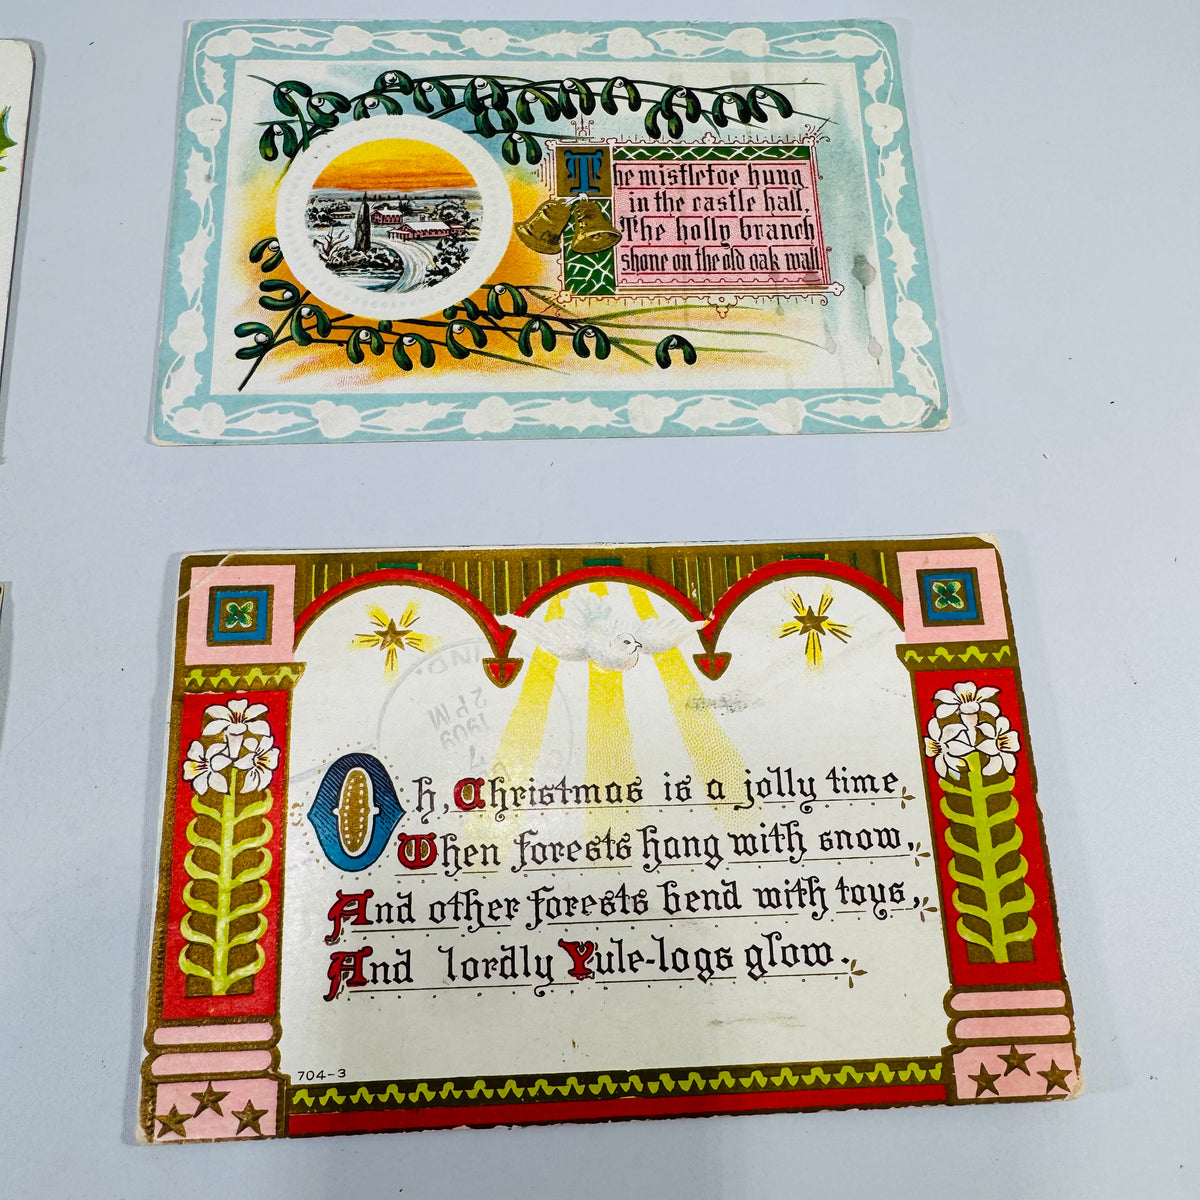 The mistletoe hung
in the castle hall,
The holly branch
shone on the old oak wall
Oh, Christmas is a jolly time,
When forests hang with snow,
And other forests bend with toys,
And lordly Yule-logs glow.
704-3
IND.
2 PM
1909
7